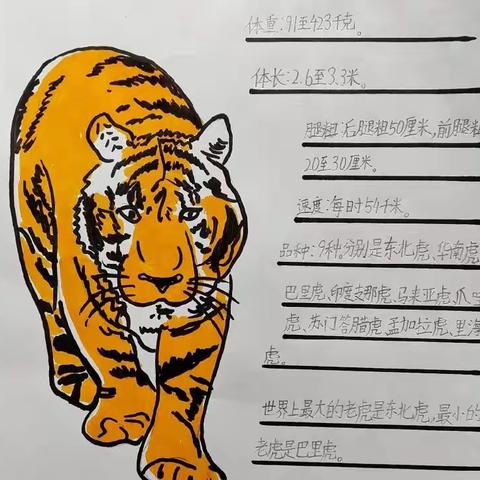 体重:91至423千克。
体长:2.6至3.3米。
腿粗:后腿粗50厘米,前腿粗
20至30厘米。
速度:每时54千米。
品种:9种。分别是东北虎、华南虎
巴里虎、印度支那虎、马来亚虎、爪
虎、苏门答腊虎、孟加拉虎、里海
虎。
世界上最大的老虎是东北虎,最小的
老虎是巴里虎。